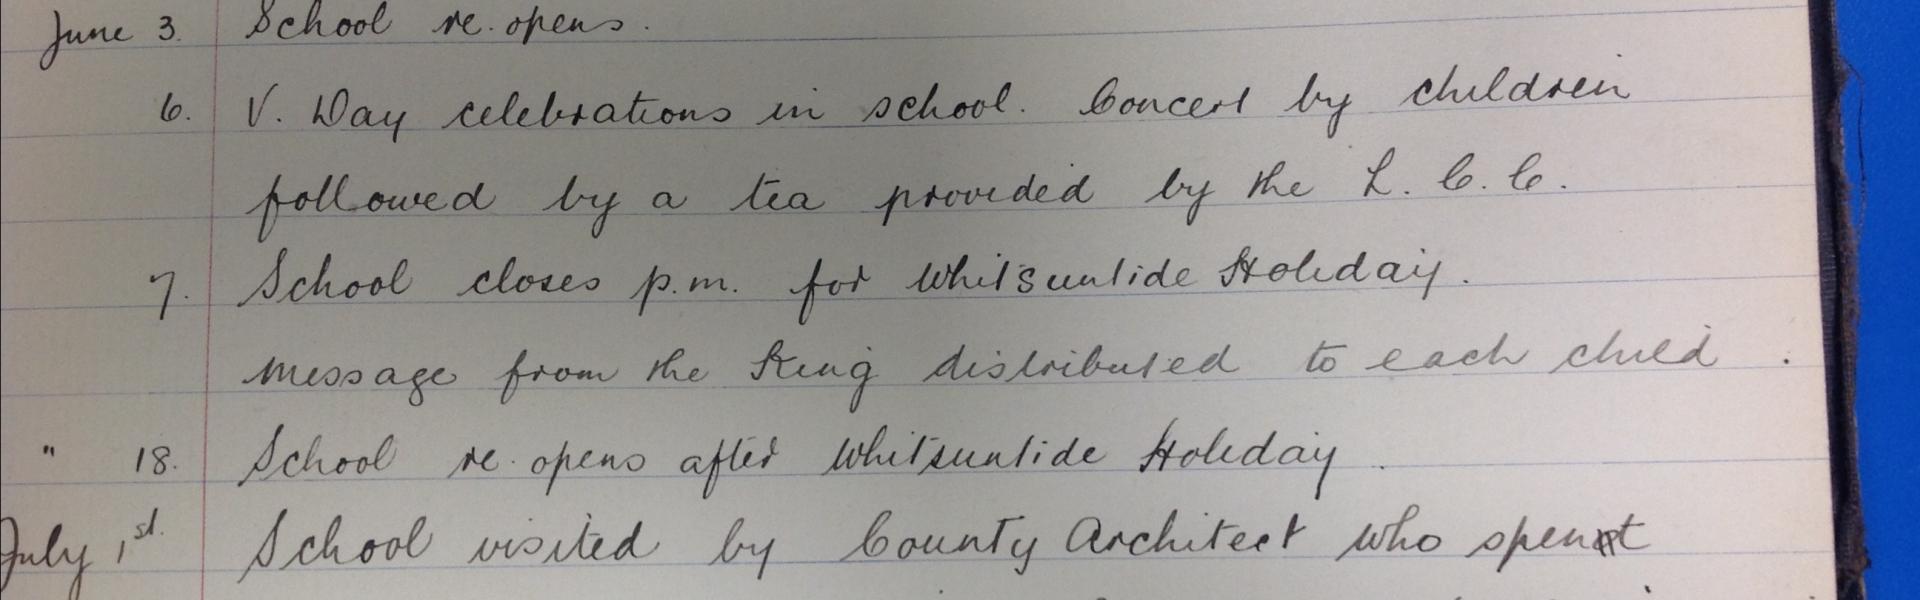 June 3. School re.opens.
6. V. Day celebrations in school. Concert by children
followed by a tea provided by the L.C.C.
7. School closes p.m. for Whitsuntide Holiday.
Message from the King distributed to each child.
" 18. School re.opens after Whitsuntide Holiday.
July 1st. School visited by County Architect who spent